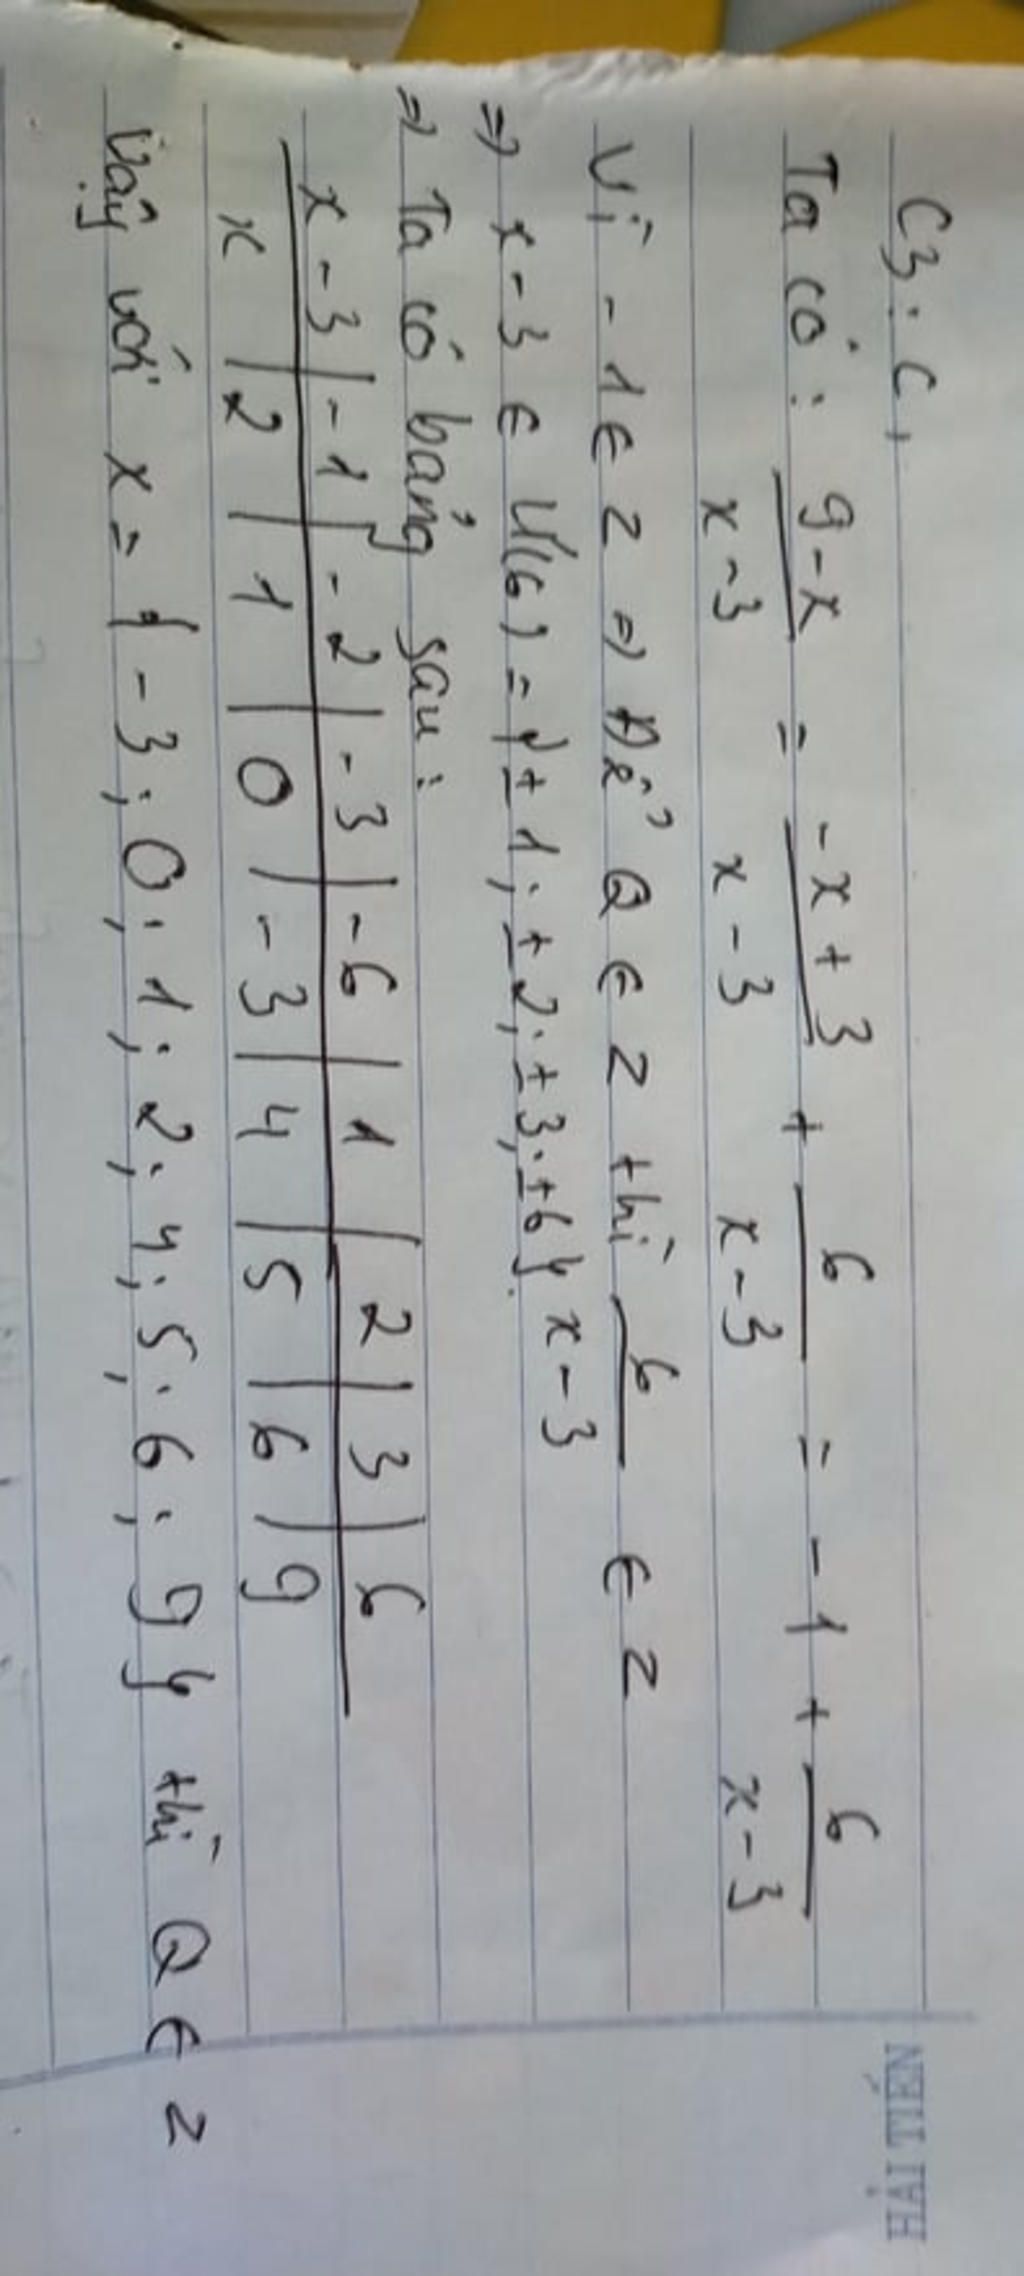 HẢI TIẾN
C3: C,
Ta có: 9-x / x-3 = -x+3 / x-3 + 6 / x-3 = -1 + 6 / x-3
Vì -1 ∈ Z => Để Q ∈ Z thì 6 / x-3 ∈ Z
=> x-3 ∈ Ư(6) = {±1; ±2; ±3; ±6}.
=> Ta có bảng sau:
x-3 | -1 | -2 | -3 | -6 | 1 | 2 | 3 | 6
x | 2 | 1 | 0 | -3 | 4 | 5 | 6 | 9
Vậy với x = {-3; 0; 1; 2; 4; 5; 6; 9} thì Q ∈ Z